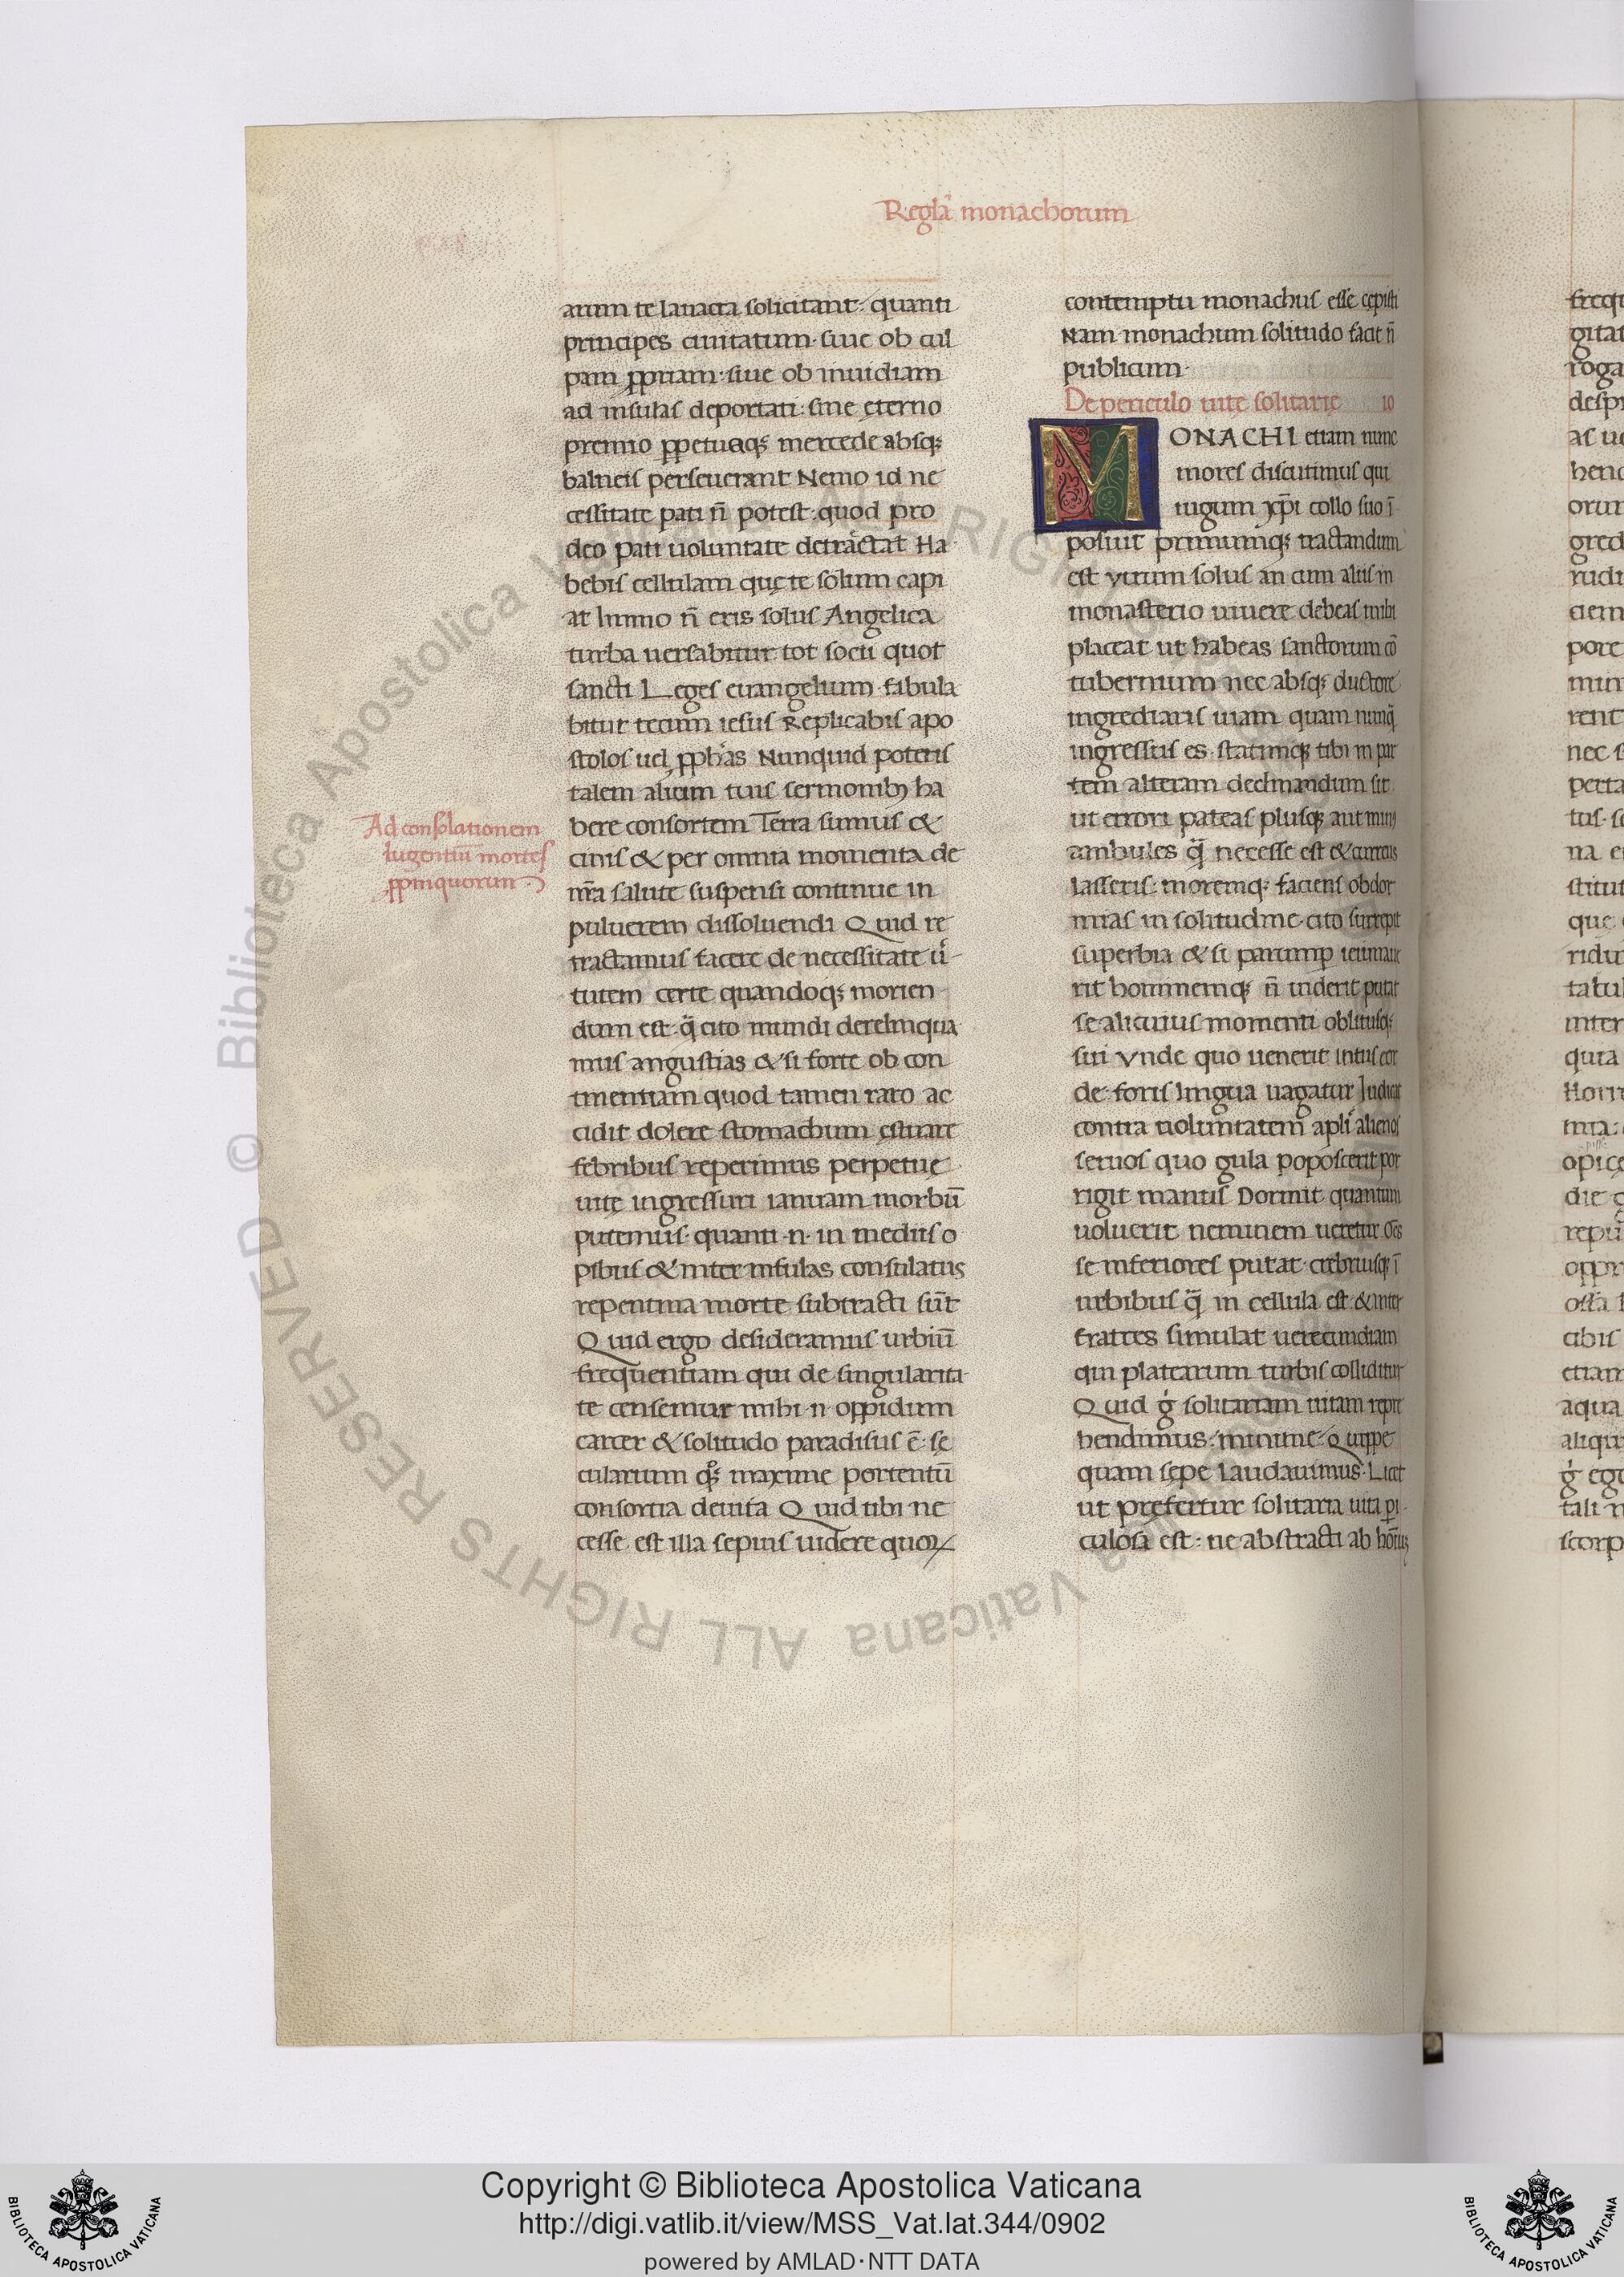 Regla᷑ monachorum
arum te lauacra solicitant: quanti
principes ciuitatum· siue ob cul
pam ꝓpriam· siue ob inuidiam
ad insulas deportati: sine ęterno
premio ꝑpetuaqꝫ mercede absqꝫ
balneis perseuerant Nemo id ne
cessitate pati n̄ potest: quod pro
deo pati uoluntate detractat Ha
bebis cellulam quę te solum capi
at Immo n̄ eris solus Angelica
turba uersabitur tot socii quot
sancti Leges euangelium· fabula
bitur tecum iesus Replicabis apo
stolos uel ꝓphas Nunquid poteris
talem alium tuis sermonibꝫ ha
bere consortem Terra sumus &
cinis & per omnia momenta de
nr̄a salute suspensi continue in
puluerem dissoluendi Quid re
tractamus facere de necessitate uͥr
tutem certe quandoqꝫ morien
dum est· q̄ cito mundi derelinqua
mus angustias & si forte ob con
tinentiam quod tamen raro ac
cidit dolere stomachum ęstuare
febribus reperimus perpetuę
uitę ingressuri ianuam morbū
putemus· quanti ·n· in mediis o
pibus & inter infulas consulatus
repentina morte subtracti sūt
Quid ergo desideramus urbiū
frequentiam qui de singularita
te censemur mihi ·n· oppidum
carcer & solitudo paradisus ē· se
cularium qꝫ maxime portentū
consortia deuita Quid tibi ne
cesse est illa sepius uidere quoꝝ
Ad consolationem
lugentiū mortes
ꝓpinquorum·
contemptu monachus esse cepisti
Nam monachum solitudo facit n̄
publicum·
De periculo uitę solitarię 10
MONACHI etiam nunc
mores discutimus qui
iugum xp̄i collo suo ī
posuit primumqꝫ tractandum
est Vtrum solus an cum aliis in
monasterio uiuere debeas mihi
placeat ut habeas sanctorum cō
tubernium nec absqꝫ ductore
ingrediaris uiam quam nunq̄
ingressus es· statimqꝫ tibi in par
tem alteram declinandum sit
ut errori pateas plusqꝫ aut minꝰ
ambules q̄ necesse est & currens
lasseris: moremqꝫ faciens obdor
mias in solitudine· cito surrepit
superbia & si parumꝑ ieiunaue
rit hominemqꝫ n̄ uiderit putat
se alicuius momenti oblitusqꝫ
sui Vnde quo uenerit intus cor
de· foris lingua uagatur Iudicat
contra uoluntatem apli alienos
seruos quo gula poposcerit por
rigit manus Dormit quantum
uoluerit neminem ueretur oēs
se inferiores putat· crebriusqꝫ ī
urbibus q̄ in cellula est· & inter
fratres simulat uerecundiam
qui platearum turbis colliditur
Quid gͥ solitariam uitam repre
hendimus: minime· Quippe
quam sepe laudauimus· Licet
ut prefertur solitaria uita ꝑi
culosa est: ne abstracti ab hoībꝫ
Copyright © Biblioteca Apostolica Vaticana
http://digi.vatlib.it/view/MSS_Vat.lat.344/0902
powered by AMLAD·NTT DATA